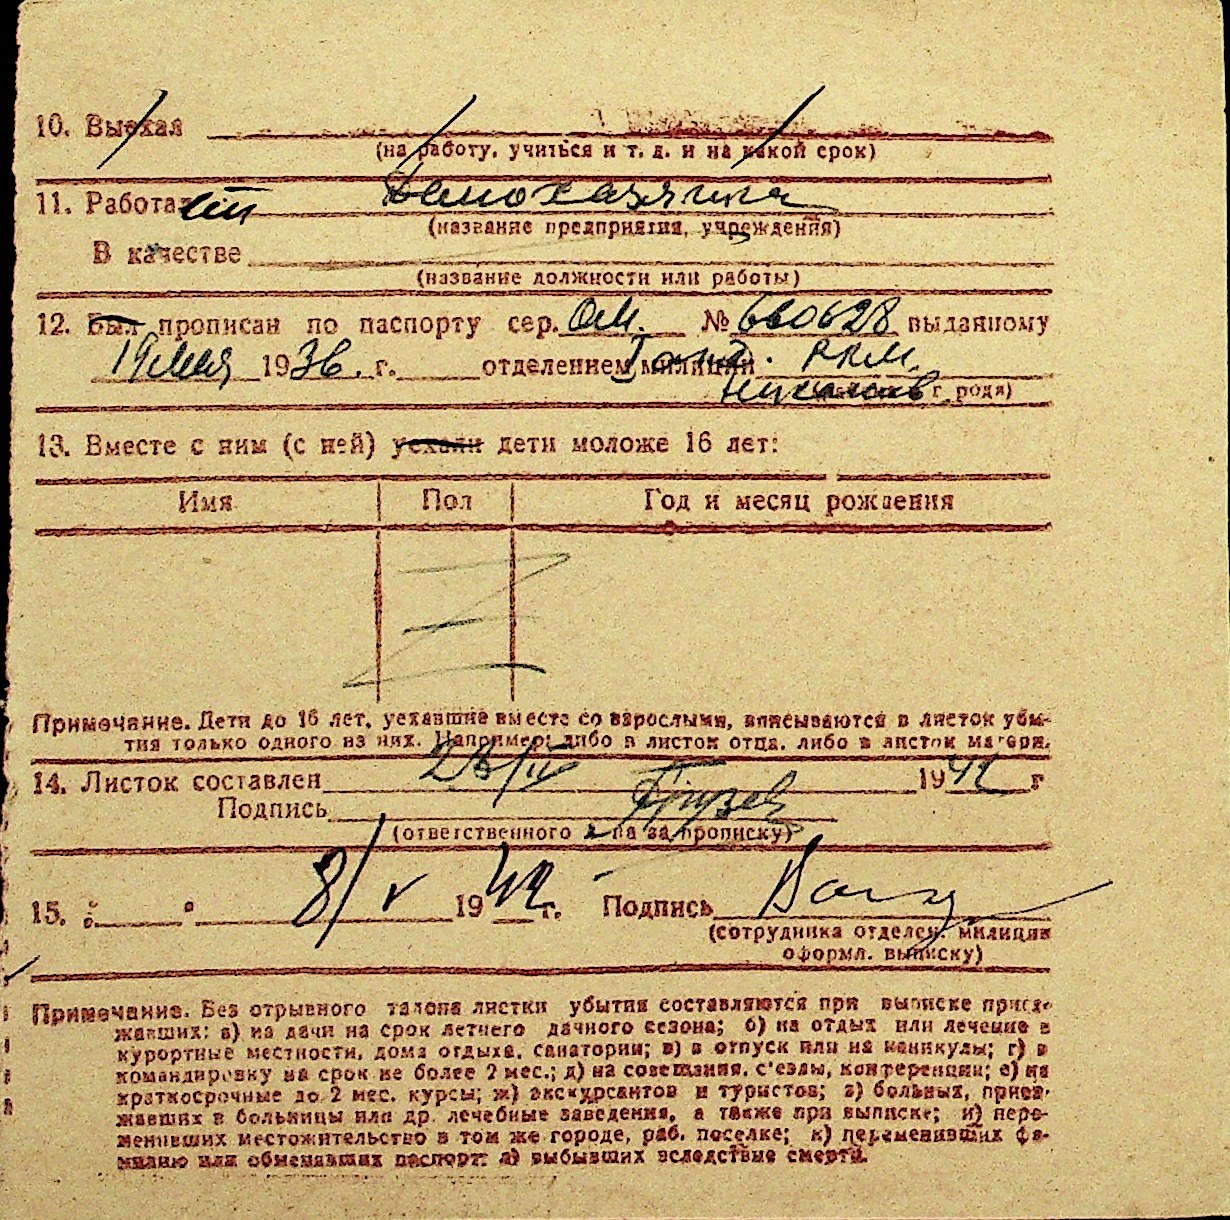 10. Выехал
(на работу, учиться и т. д. и на какой срок)
11. Работает Домохозяйка
(название предприятия, учреждения)
В качестве
(название должности или работы)
12. Был прописан по паспорту сер. № 660628 выданному
19 мая 1936. г. отделением милиции РКМ.
г. рода)
13. Вместе с ним (с ней) уехали дети моложе 16 лет:
Имя Пол Год и месяц рождения
Примечание. Дети до 16 лет, уехавшие вместе со взрослыми, вписываются в листок убы-
тия только одного из них. Например: либо в листок отца, либо в листок матери.
14. Листок составлен 1942 г
Подпись
(ответственного за прописку)
15. " " 8/V 1942 г. Подпись
(сотрудника отделен. милиции
оформл. выписку)
Примечание. Без отрывного талона листки убытия составляются при выписке приез-
жавших: а) на дачи на срок летнего дачного сезона; б) на отдых или лечение в
курортные местности, дома отдыха, санатории; в) в отпуск или на каникулы; г) в
командировку на срок не более 2 мес.; д) на совещания, с'езды, конференции; е) на
краткосрочные до 2 мес. курсы; ж) экскурсантов и туристов; з) больных, приез-
жавших в больницы или др. лечебные заведения, а также при выписке; и) пере-
менивших местожительство в том же городе, раб. поселке; к) переменивших фа-
милию или обменявших паспорт; л) выбывших вследствие смерти.